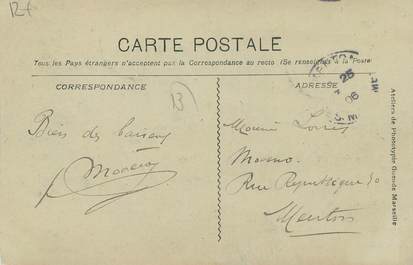 CARTE POSTALE
Tous les Pays étrangers n'acceptent pas la Correspondance au recto (Se renseigner à la Poste)
CORRESPONDANCE
ADRESSE
13
25
06
Bien des baisers
Moreno
Monsieur Louis
Moreno
Rue République 30
Menton
Ateliers de Phototypie Giende Marseille